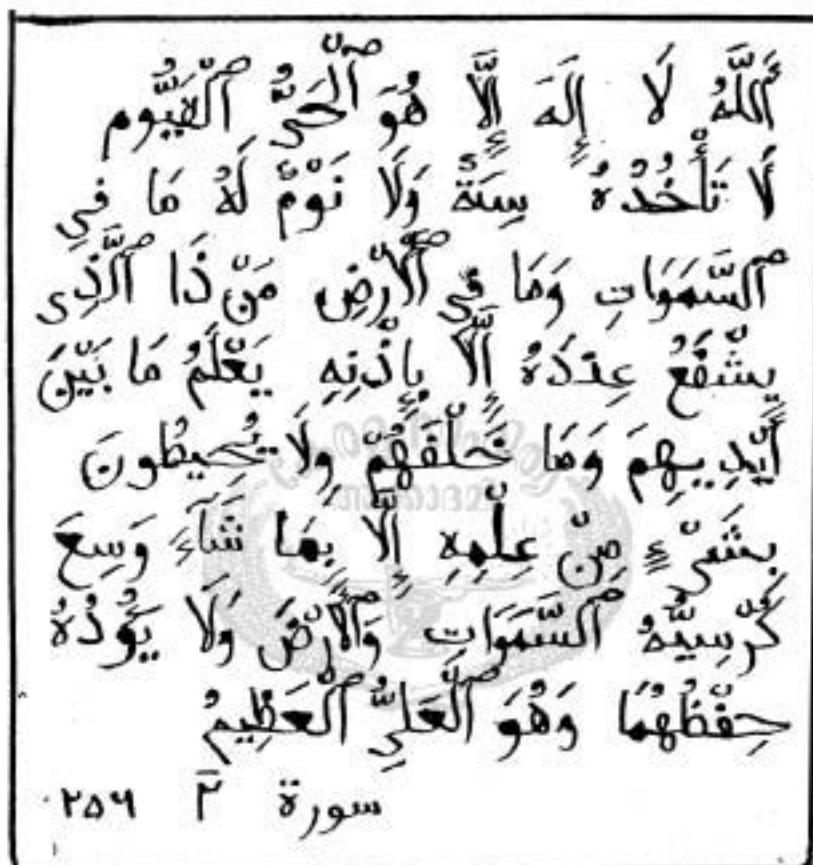 اَللَّهُ لَا إِلَهَ إِلَّا هُوَ ٱلْحَىُّ ٱلْقَيُّوم
لَا تَأْخُذُهُ سِنَةٌ وَلَا نَوْمٌ لَهُ مَا فِي
ٱلسَّمَوَاتِ وَمَا فِي ٱلْأَرْضِ مَنْ ذَا ٱلَّذِى
يَشْفَعُ عِنْدَهُ إِلَّا بِإِذْنِهِ يَعْلَمُ مَا بَيْنَ
أَيْدِيهِمَ وَمَا خَلْفَهُمْ وَلَا يُحِيطُونَ
بِشَىْءٍ مِنْ عِلْمِهِ إِلَّا بِمَا شَآءَ وَسِعَ
كُرْسِيُّهُ ٱلسَّمَوَاتِ وَٱلْأَرْضَ وَلَا يَؤُدُهُ
حِفْظُهُمَا وَهُوَ ٱلْعَلِىُّ ٱلْعَظِيمُ
سورة ٢ ٢٥٦